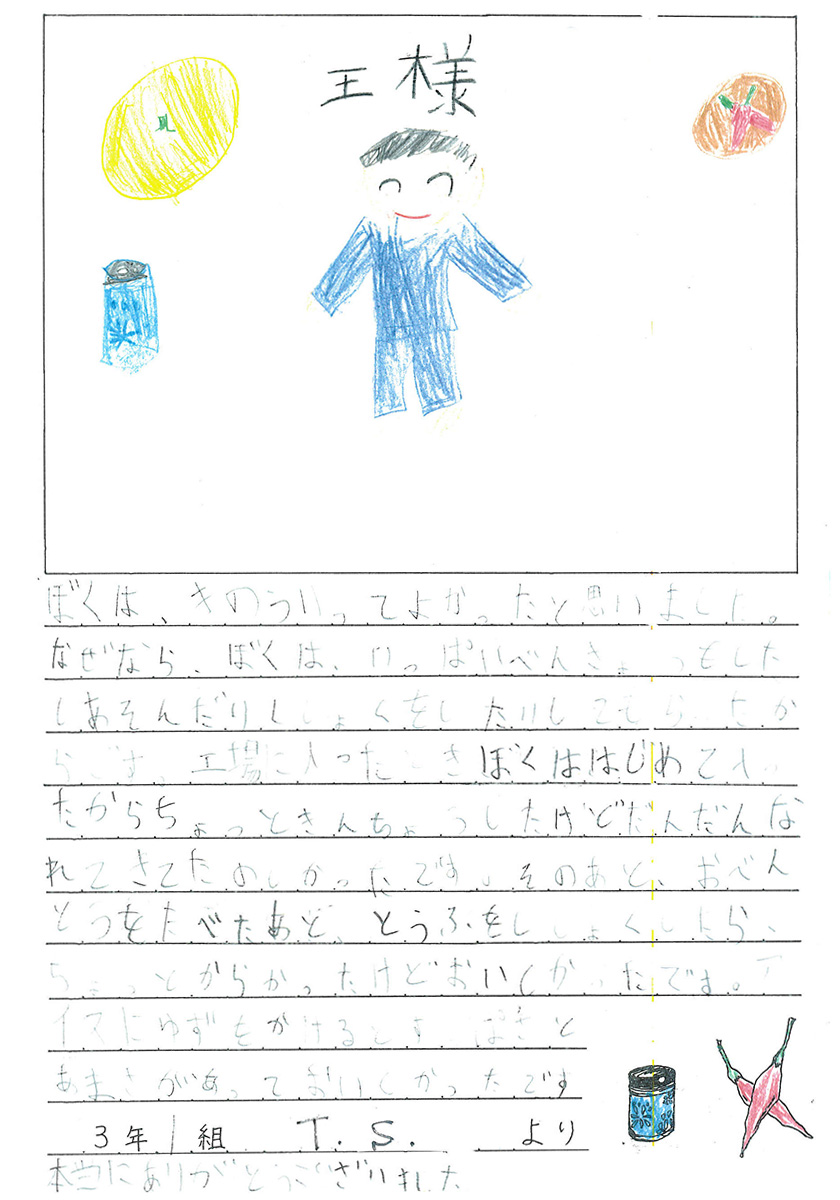 王様
ぼくは、きのういってよかったと思いました。
なぜなら、ぼくは、いっぱいべんきょうもした
しあそんだりししょくをしたりしてもらったか
らです。工場に入ったときぼくははじめてい
たからちょっときんちょうしたけどだんだんな
れてきてたのしかったです。そのあと、おべん
とうをたべたあと、とうふをししょくしたら、
ちょっとからかったけどおいしかったです。ア
イスにゆずをかけるとすっぱさと
あまさがあっておいしかったです
3年1組 T.S. より
本当にありがとうございました